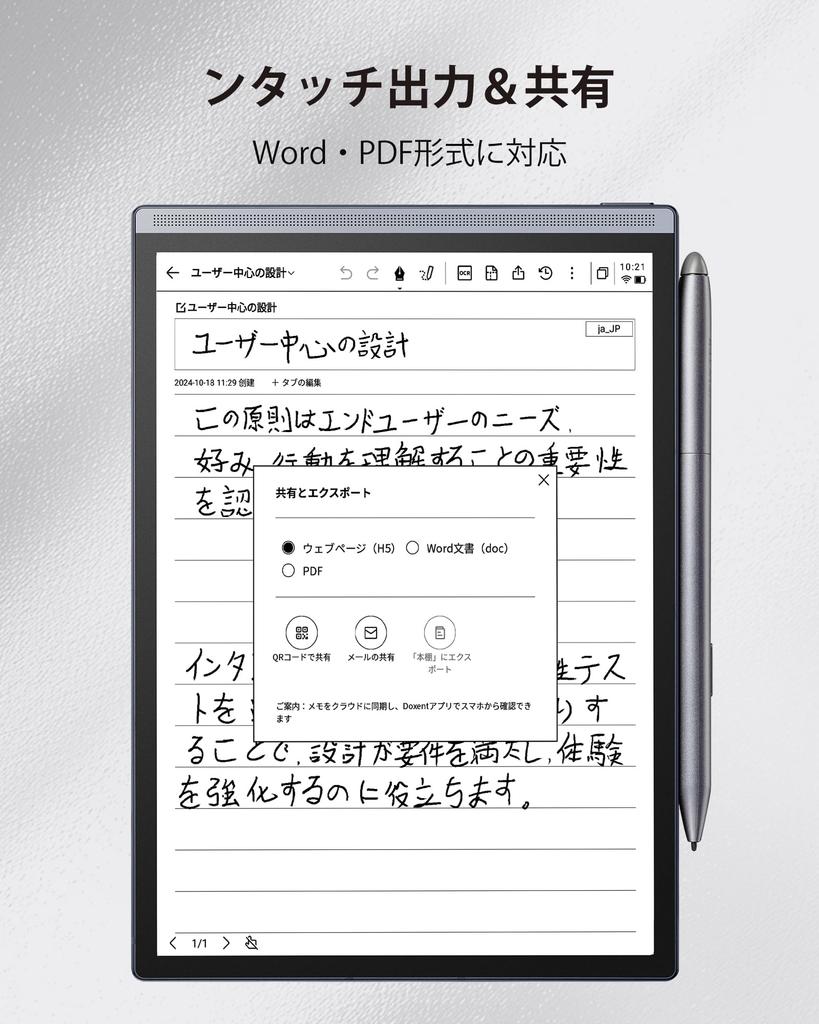 ンタッチ出力＆共有
Word・PDF形式に対応
ユーザー中心の設計
OCR
10:21
ユーザー中心の設計
ja_JP
ユーザー中心の設計
2024-10-18 11:29 创建 ＋ タブの編集
この原則はエンドユーザーのニーズ、
好み、行動を理解することの重要性
を認
共有とエクスポート
ウェブページ（H5） Word文書（doc）
PDF
QRコードで共有 メールの共有 「本棚」にエクスポート
ご案内：メモをクラウドに同期し、Doxentアプリでスマホから確認でき
ます
インタ 性テス
トを りす
ることで、設計が要件を満たし、体験
を強化するのに役立ちます。
1/1